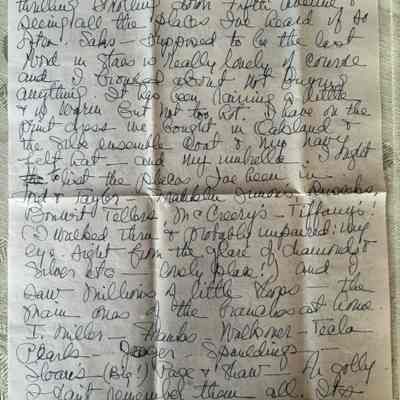 thrilling strolling down Fifth Avenue &
seeing all the places I've heard of so
often. Saks – supposed to be the last
word in stores is really lovely of course
and I browsed about not buying
anything. It has been raining a little
& is warm but not too hot. I have on the
print dress we bought in Oakland &
the silk ensemble coat & my navy
felt hat – and my umbrella. I might
list the places I've been in –
Lord & Taylor –
Bonwit Tellers – McCreery's – Tiffany's!
(I walked thru & probably impaired my
eye sight from the glare of diamonds &
silver etc – lovely place!) and I
saw millions of little shops – the
main ones of the branches at home.
I. Miller – Hanks Walkover – Tecla
Pearls – Spauldings –
Sloanes (Big!) Page & Shaw – Ah golly
I can't remember them all. It's